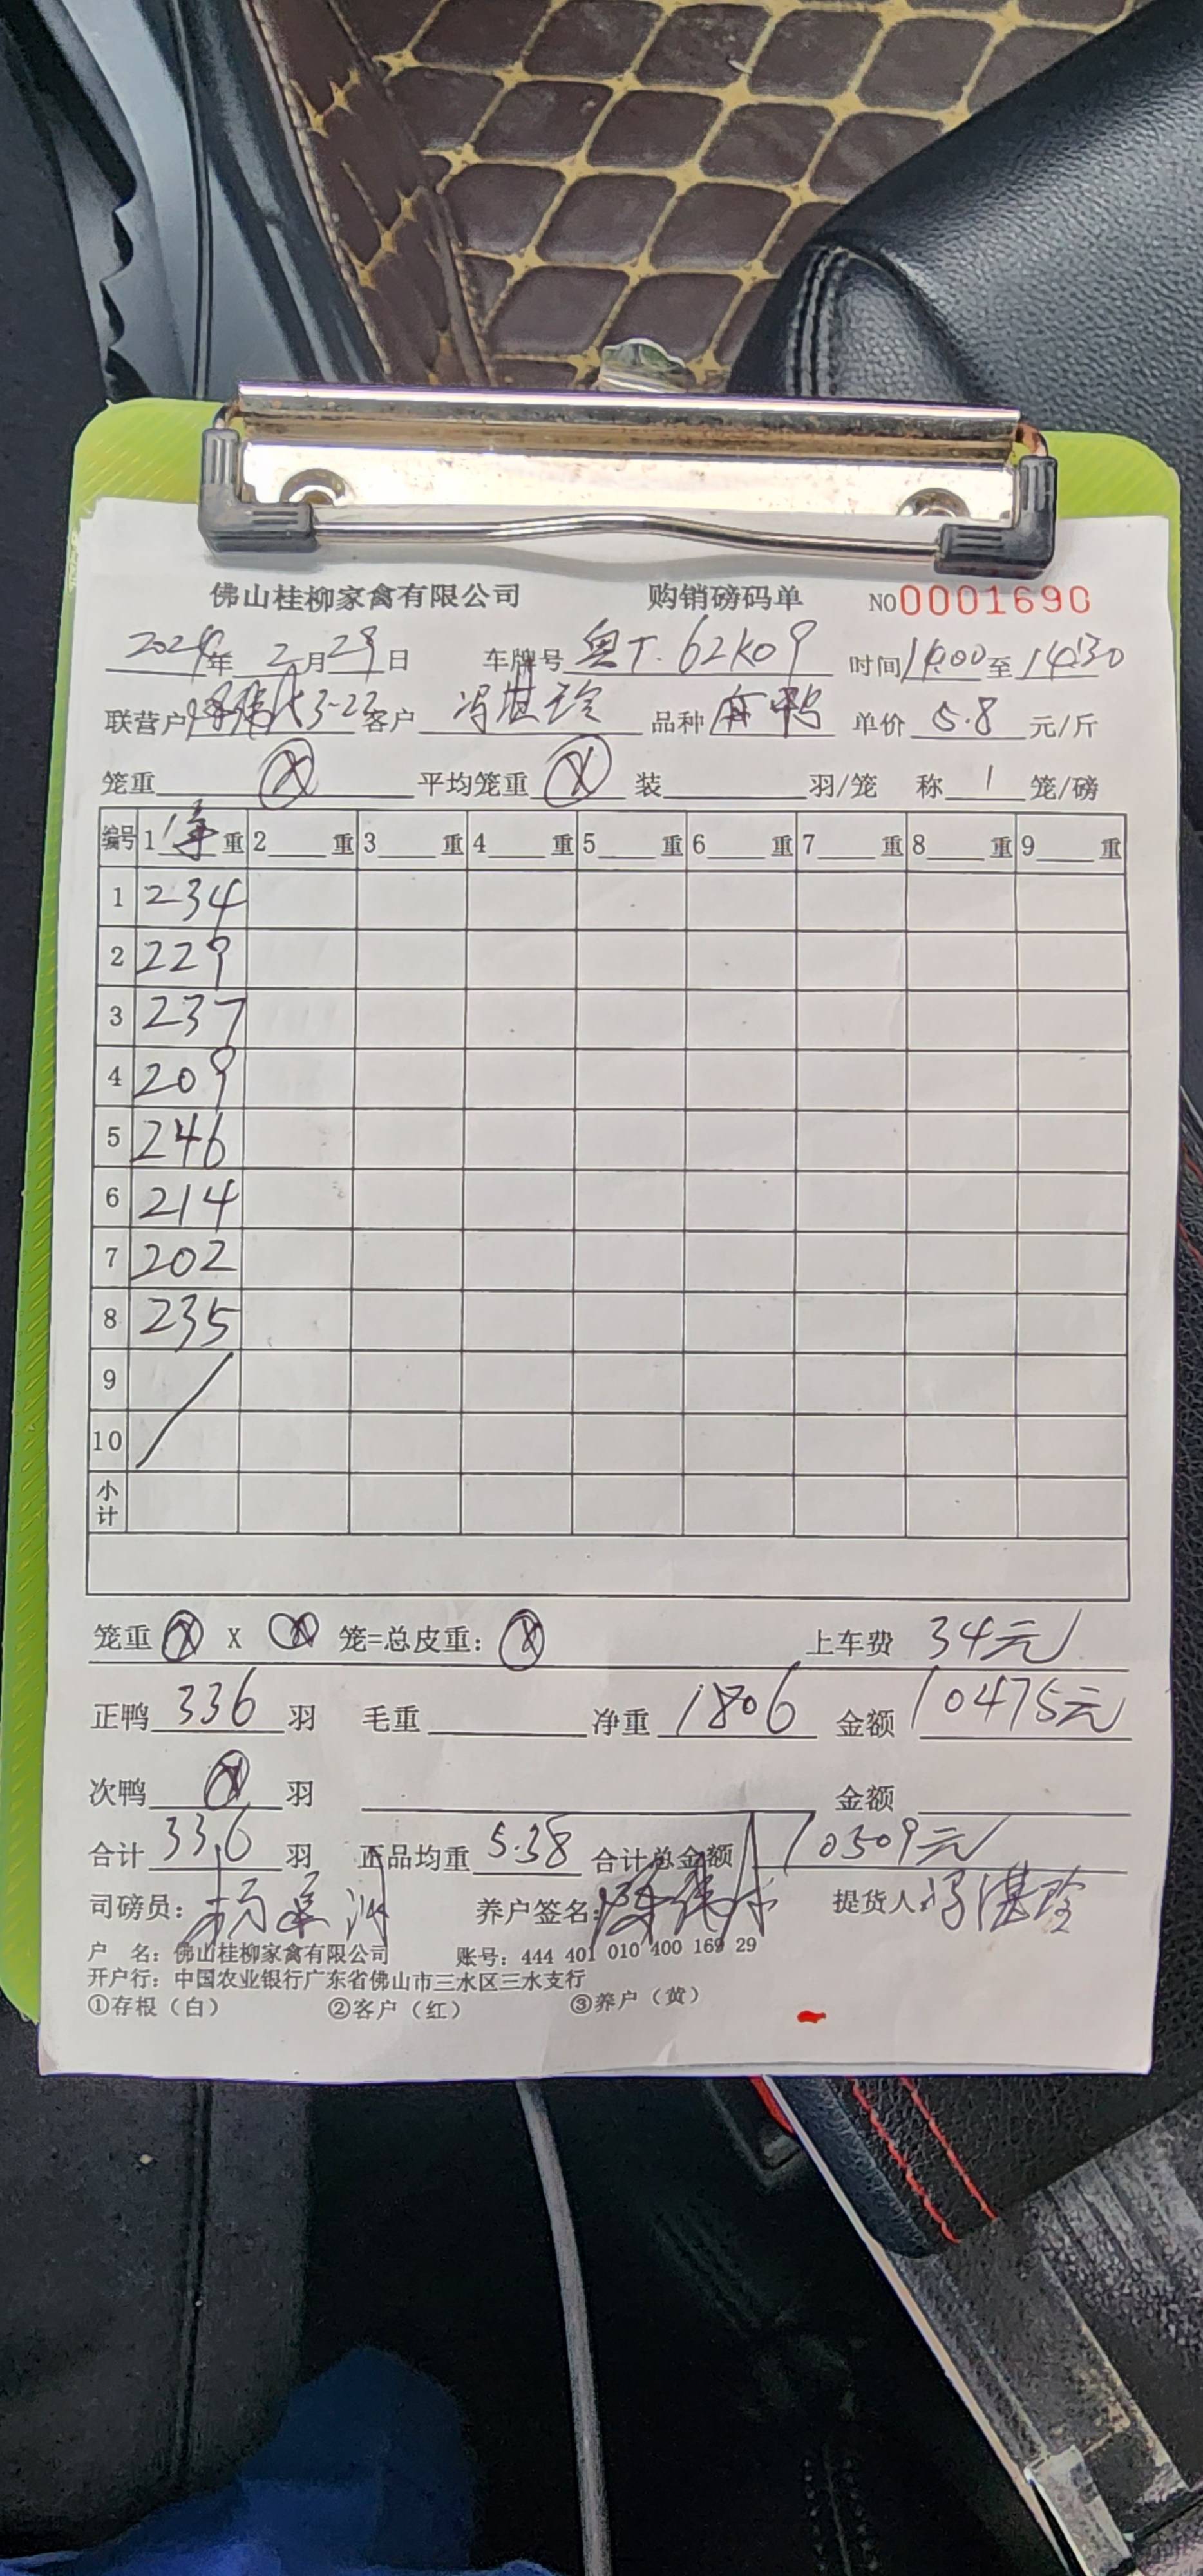 佛山桂柳家禽有限公司 购销磅码单 NO0001690
2024年 2月29日 车牌号 粤T.62K09 时间14:00至14:30
联营户 3-23 客户 冯湛玲 品种 麻鸭 单价 5.8 元/斤
笼重 平均笼重 装 羽/笼 称 1 笼/磅
编号 1 净 重 2 重 3 重 4 重 5 重 6 重 7 重 8 重 9 重
1 234
2 229
3 237
4 209
5 246
6 214
7 202
8 235
9
10
小计
笼重 X 笼=总皮重: 上车费 34元
正鸭 336 羽 毛重 净重 1806 金额 10475元
次鸭 羽 金额
合计 336 羽 正品均重 5.38 合计总金额 10509元
司磅员: 养户签名: 提货人: 冯湛玲
户 名: 佛山桂柳家禽有限公司 账号: 444 401 010 400 169 29
开户行: 中国农业银行广东省佛山市三水区三水支行
①存根（白） ②客户（红） ③养户（黄）